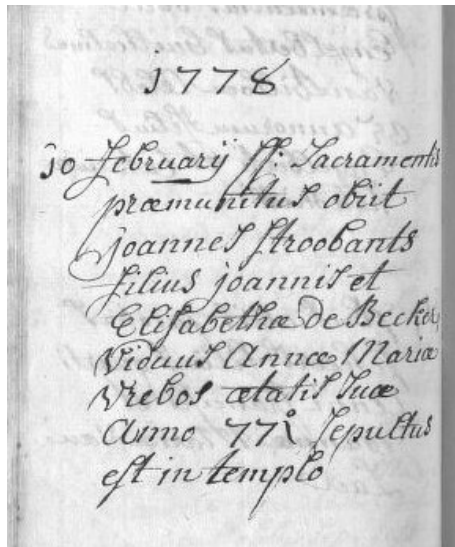 1778
10 february ss: Sacramentis
præmunitus obiit
joannes stroobants
filius joannis et
Elisabethæ de Becker
viduus Annæ Mariæ
vrebos ætatis suæ
Anno 77° sepultus
est in templo